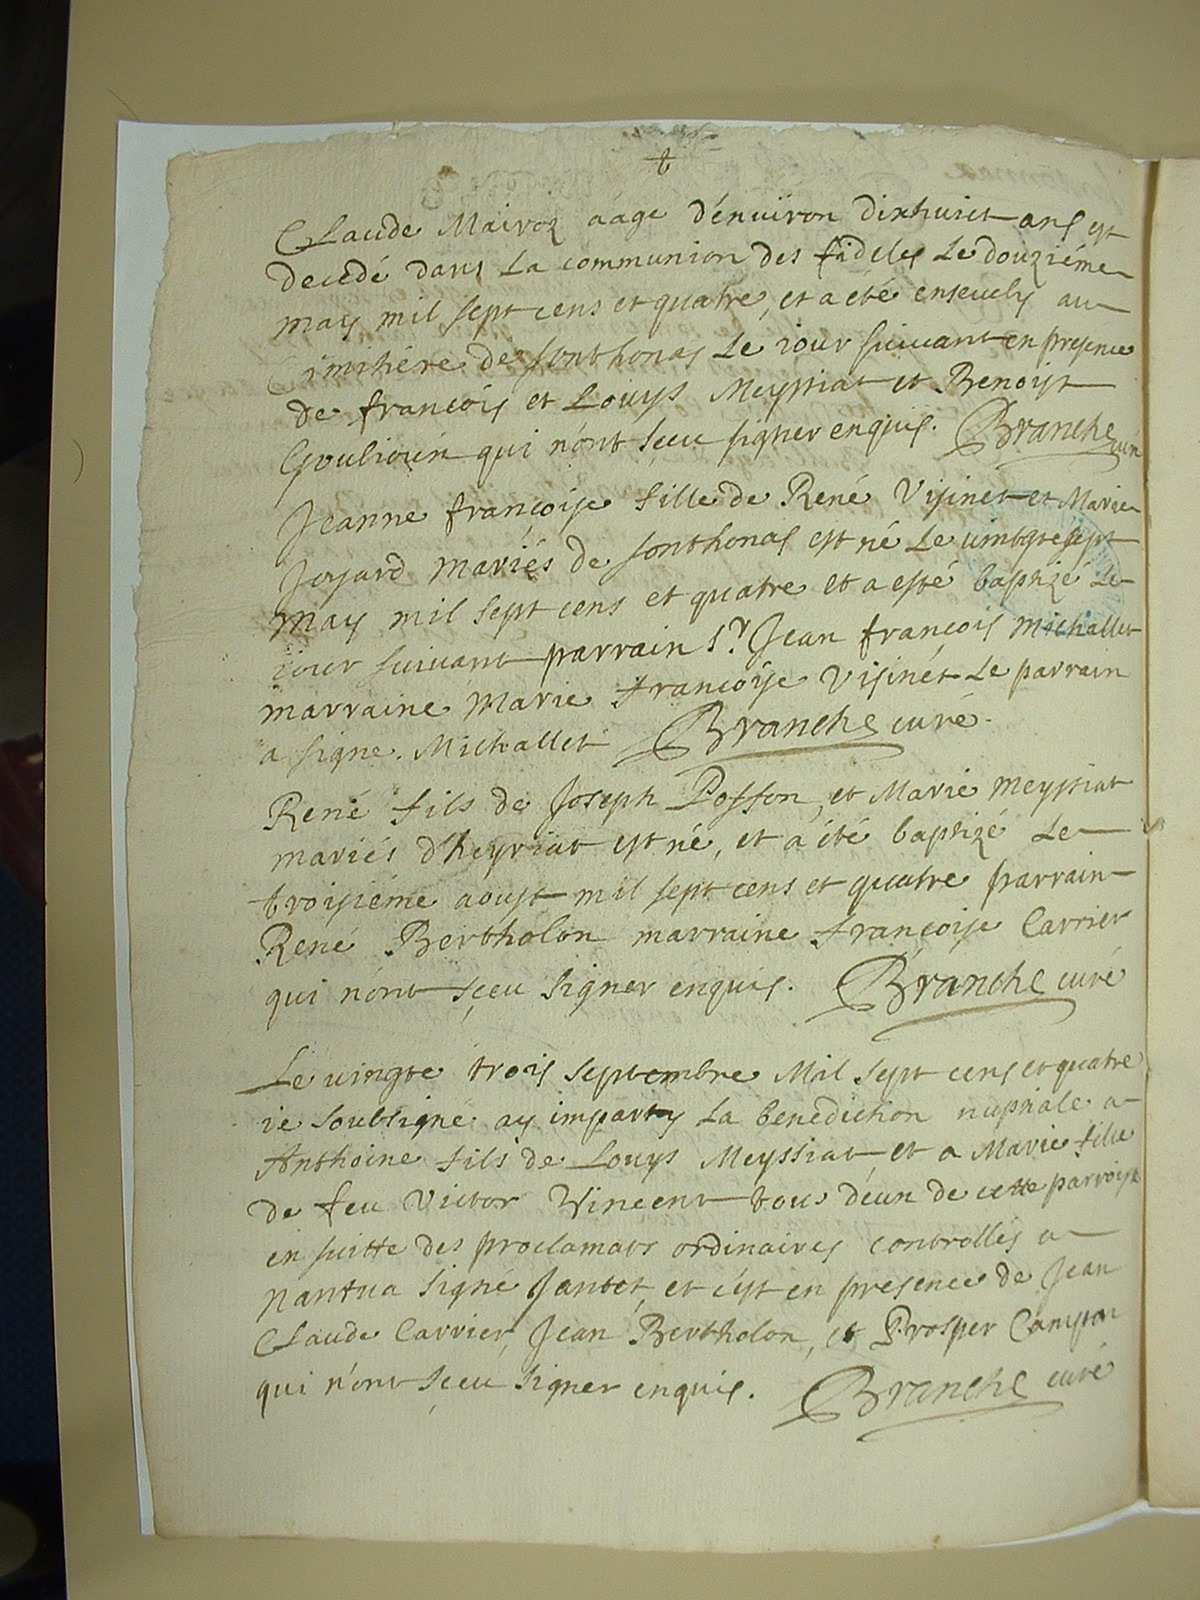 t
Claude Mairoz aagé d'énuiron dixhuict ans est
decedé dans La communion des fideles Le douziéme
may mil sept cens et quatre, et a été enseuely au
Cimitiére de sonthonas Le iour suiuant en presence
de françois et Louys Meyssiat et Benoist
Goulioún qui n'ont sçeu signer enquis. Branche curé
Jeanne françoise fille de René Visinet et Marie
Joyard mariés de sonthonas est né Le uintgtesept
may mil sept cens et quatre et a esté baptizé Le
iour suiuant parrain Sr. Jean françois Michallet
marraine Marie françoise Visinét Le parrain
a signe. Michallet Branche curé.
René fils de Joseph Posson, et Marie Meyssiat
mariés d'heyriat est né, et a été baptizé Le
troisiéme aoust mil sept cens et quatre parrain
René Bertholon marraine françoise Carrier
qui n'ont sçeu signer enquis. Branche curé
Le uingte trois septembre Mil sept cens et quatre
ie soubsigné ay imparty La benediction nuptiale a
Anthoine fils de Louys Meyssiat, et a Marie fille
de feu Victor Vincent tous deux de cette parroisse
en suitte des proclamats ordinaires controllés a
Nantua signé Jantet, et c'est en presence de Jean
Claude Carrier, Jean Bertholon, et Prosper Campon
qui n'ont sçeu signer enquis. Branche curé